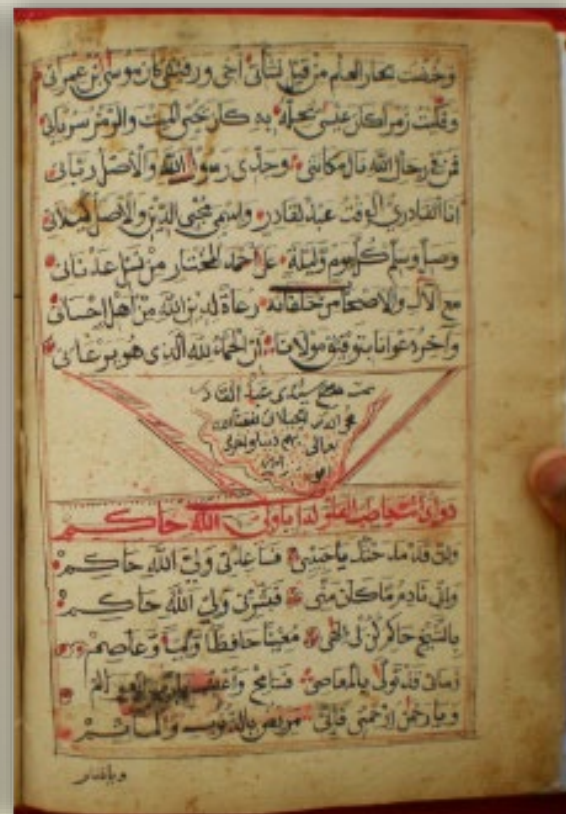 وخضت بحار العلم من قبل نشأتي أخي ورفيقي كان موسى ابن عمراني
كان عيسى به كان يحيي الميت والرمز سرياني
فمن في رجال الله نال مكانتي وجدي رسول الله والأصل رباني
أنا القادري الوقت عبد القادر واسمي محيي الدين والأصل كيلاني
وصل وسلم كل يوم وليلة على أحمد المختار من نسل عدناني
مع الآل والأصحاب من خلفائه رعاة لدين الله من أهل إحساني
وآخر دعوانا بتوفيق مولانا أن الحمد لله الذي هو يرعاني
تمت سيدي عبد القادر
الجيلاني نفعنا الله
تعالى بهم دنيا وأخرى
آمين
الله حاكم
وإني قد مدحتك فساعدني ولي الله حاكم
وإني نادم ما كان مني فبشرني ولي الله حاكم
بالشيخ حاكم كن لي مغيثا حافظا وعاصم
زماني قد تولى بالمعاصي فسامح واغفر
ويا رحمن ارحمني فإني مريض بالذنوب والمآثم